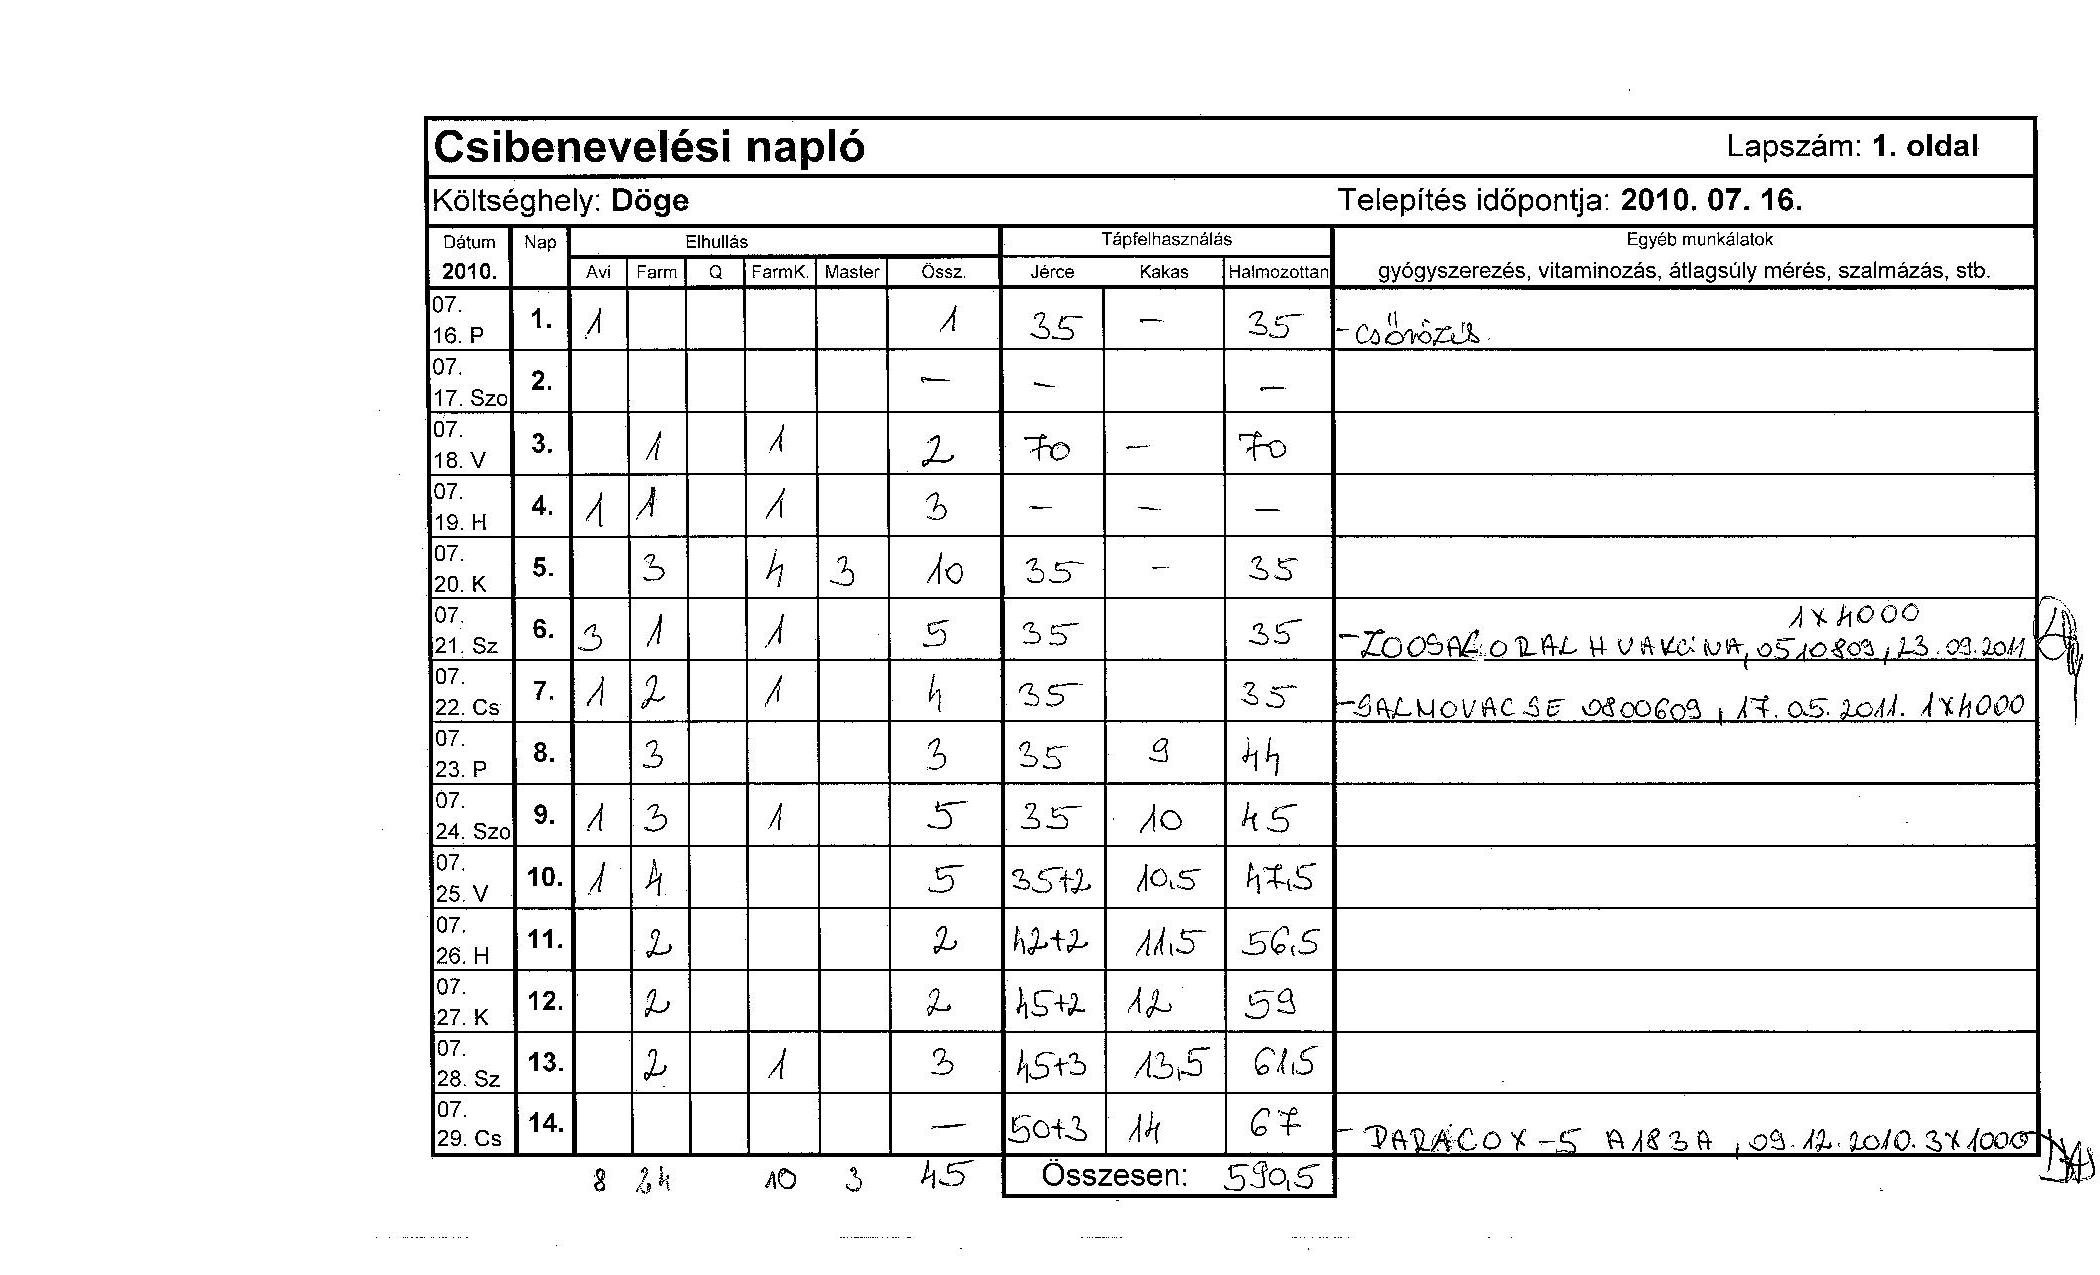 Csibenevelési napló Lapszám: 1. oldal
Költséghely: Döge Telepítés időpontja: 2010. 07. 16.
Dátum Nap Elhullás Tápfelhasználás Egyéb munkálatok
2010. Avi Farm Q FarmK. Master Össz. Jérce Kakas Halmozottan gyógyszerezés, vitaminozás, átlagsúly mérés, szalmázás, stb.
07.
16. P 1. 1 1 35 – 35 - csőrözés.
07.
17. Szo 2. – – –
07.
18. V 3. 1 1 2 70 – 70
07.
19. H 4. 1 1 1 3 – – –
07.
20. K 5. 3 4 3 10 35 - 35
07. 1x4000
21. Sz 6. 3 1 1 5 35 35 - ZOOSAL ORAL H VAKCINA, 0510809, 23.09.2011
07.
22. Cs 7. 1 2 1 4 35 35 - SALMOVAC SE 0800609, 17.05.2011. 1x4000
07.
23. P 8. 3 3 35 9 44
07.
24. Szo 9. 1 3 1 5 35 10 45
07.
25. V 10. 1 4 5 35+2 10,5 47,5
07.
26. H 11. 2 2 42+2 11,5 56,5
07.
27. K 12. 2 2 45+2 12 59
07.
28. Sz 13. 2 1 3 45+3 13,5 61,5
07.
29. Cs 14. – 50+3 14 67 - PARACOX-5 A183A, 09.12.2010. 3x1000
8 24 10 3 45 Összesen: 590,5